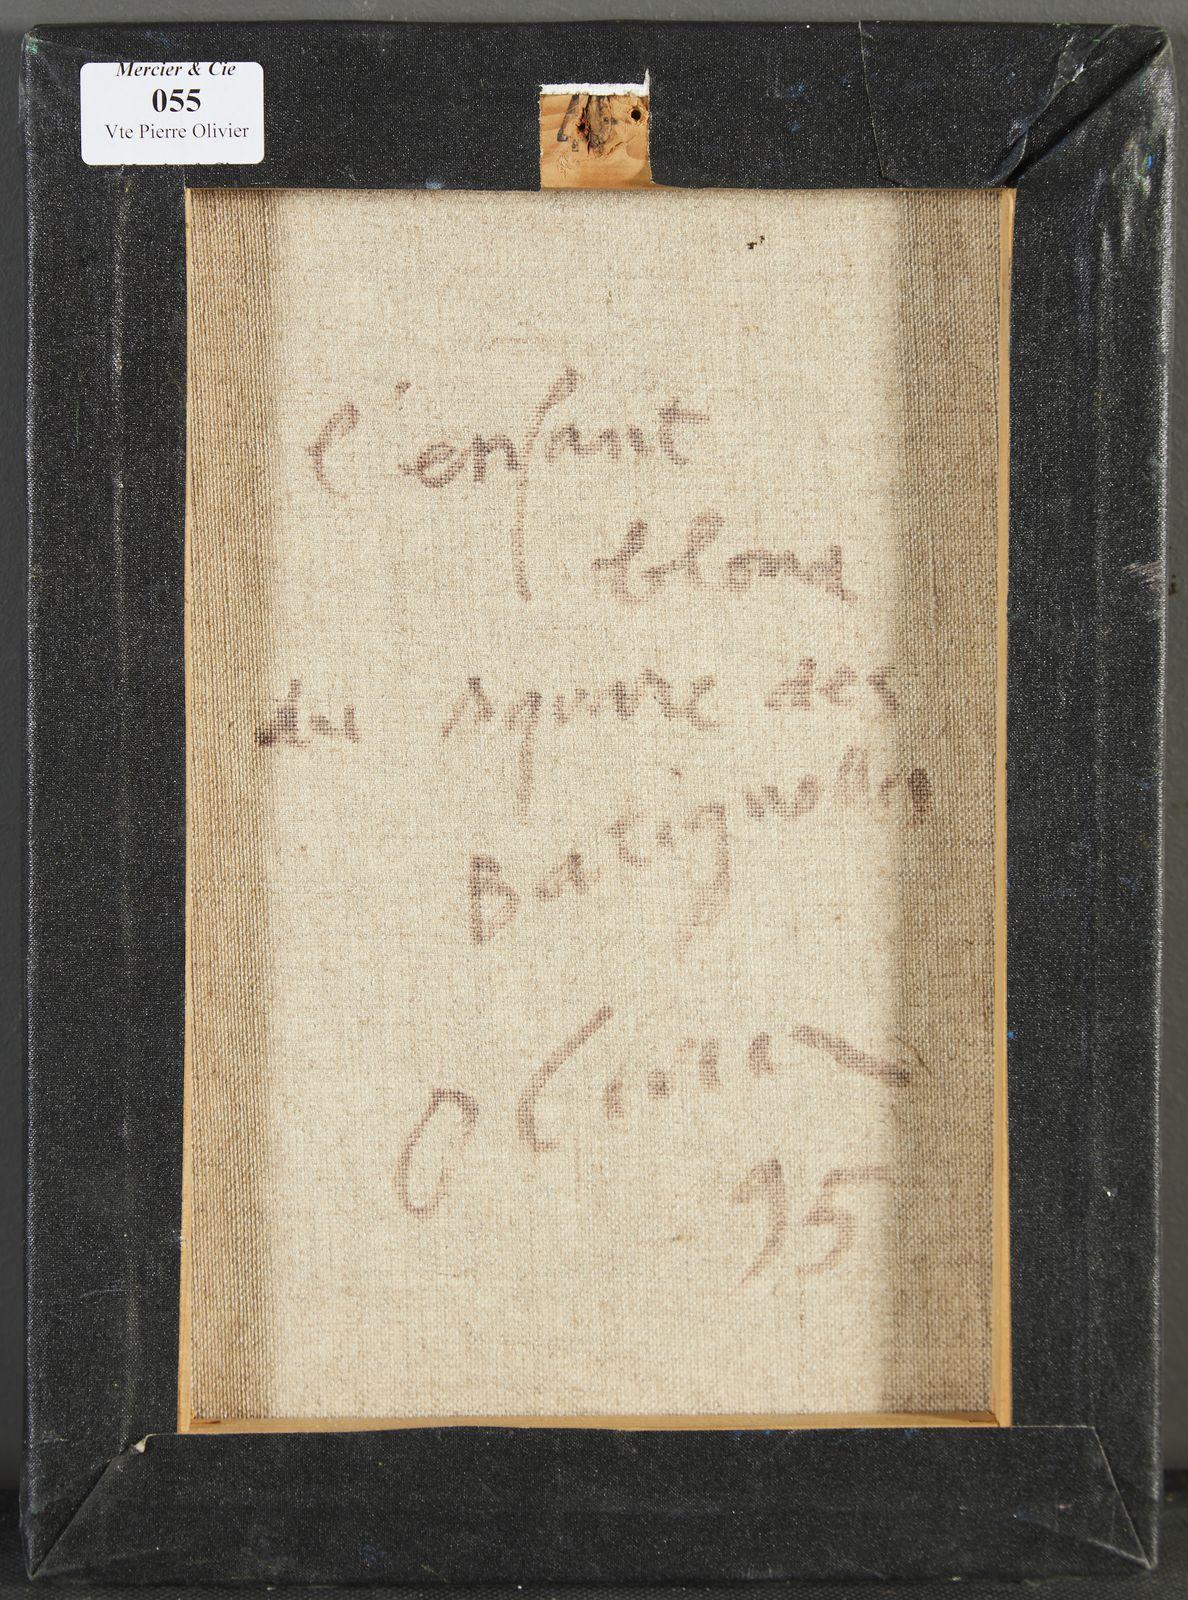 Mercier & Cie
055
Vte Pierre Olivier
l'enfant
blond
du square des
Batignolles
O
75